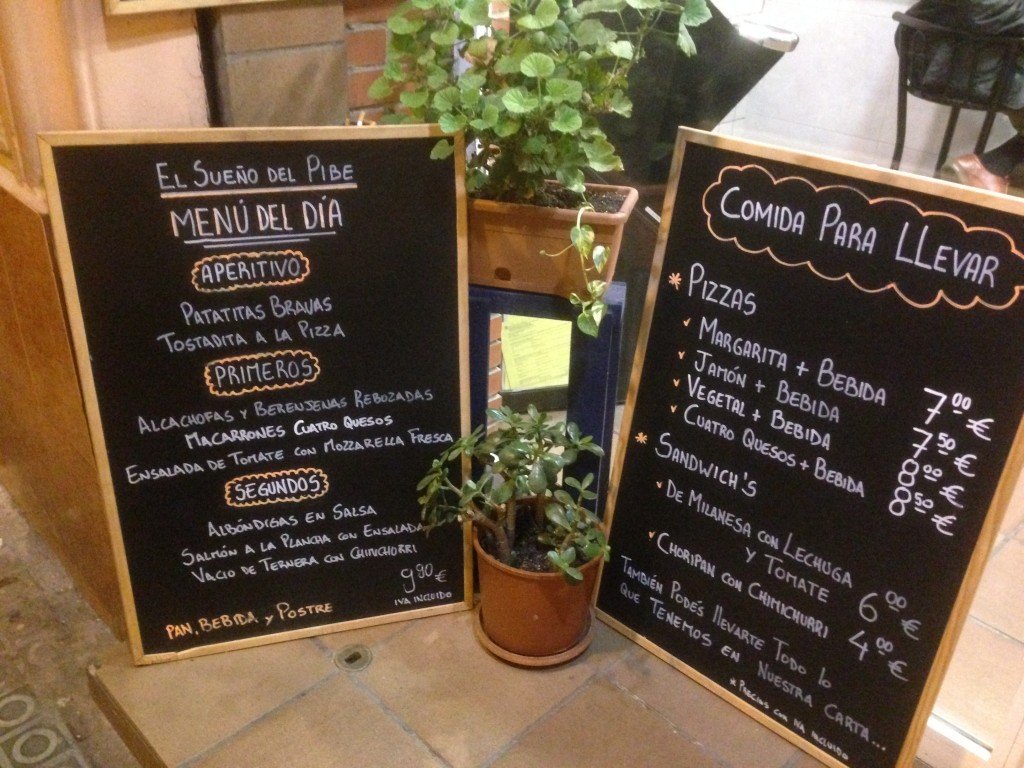 EL SUEÑO DEL PIBE
MENÚ DEL DÍA
APERITIVO
PATATITAS BRAVAS
TOSTADITA A LA PIZZA
PRIMEROS
ALCACHOFAS Y BERENJENAS REBOZADAS
MACARRONES CUATRO QUESOS
ENSALADA DE TOMATE CON MOZZARELLA FRESCA
SEGUNDOS
ALBÓNDIGAS EN SALSA
SALMÓN A LA PLANCHA CON ENSALADA
VACIO DE TERNERA CON CHIMICHURRI
9,90 €
IVA INCLUIDO
PAN, BEBIDA Y POSTRE
COMIDA PARA LLEVAR
* PIZZAS
MARGARITA + BEBIDA 7,00 €
JAMÓN + BEBIDA 7,50 €
VEGETAL + BEBIDA 8,00 €
CUATRO QUESOS + BEBIDA 8,50 €
* SANDWICH'S
DE MILANESA CON LECHUGA
Y TOMATE 6,00 €
CHORIPAN CON CHIMICHURRI 4,00 €
TAMBIÉN PODÉS LLEVARTE TODO LO
QUE TENEMOS EN NUESTRA CARTA...
* PRECIOS CON IVA INCLUIDO